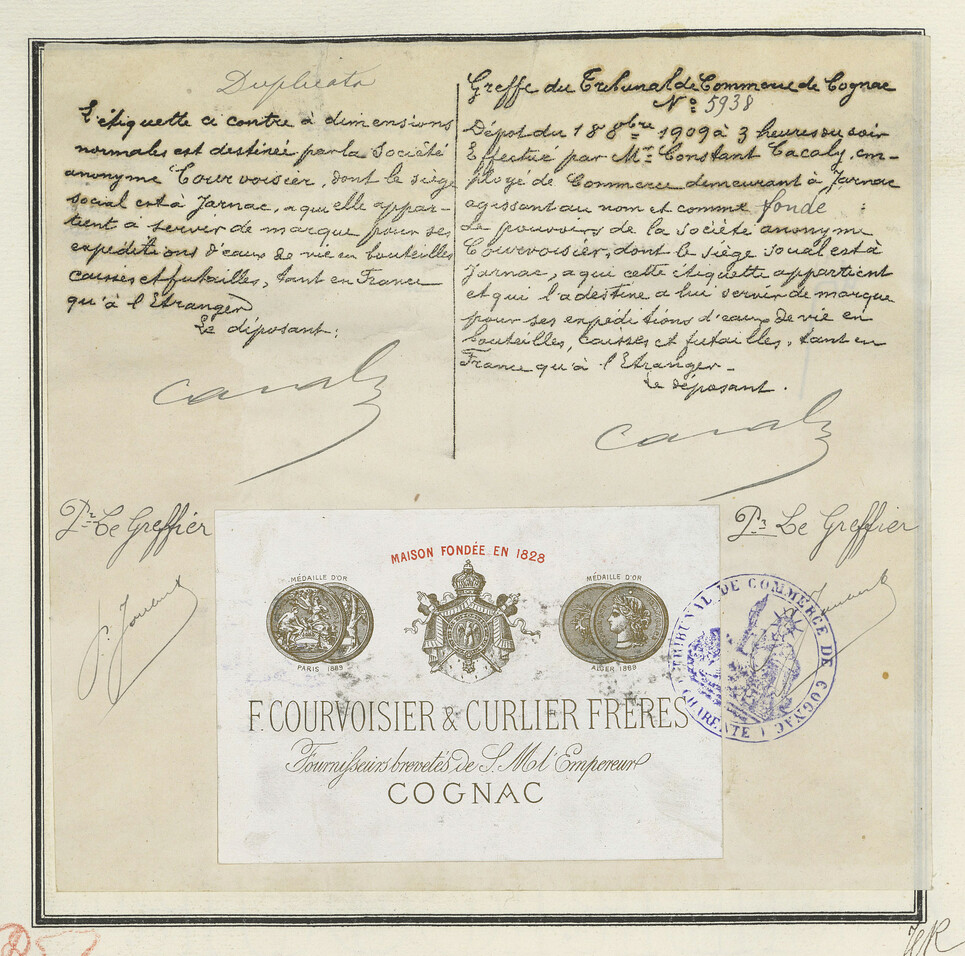 Duplicata
L'étiquette ci contre à dimensions
normales est destinée par la Société
anonyme Courvoisier, dont le siège
social est à Jarnac, a qui elle appar-
tient à servir de marque pour ses
expeditions d'eaux de vie en bouteilles
caisses et futailles, tant en France
qu'à l'Etranger
Le déposant:
Greffe du Tribunal de Commerce de Cognac
No: 5938
Dépot du 18 8bre 1909 à 3 heures du soir
Effectué par Mr Constant Cacaly, em-
ployé de Commerce demeurant à Jarnac
agissant au nom et comme fondé :
de pouvoirs de la Société anonyme
Courvoisier, dont le siège social est à
Jarnac, a qui cette étiquette appartient
et qui l'a destine a lui servir de marque
pour ses expeditions d'eaux de vie en
bouteilles, caisses et futailles, tant en
France qu'à l'Etranger-
Le déposant.
Pr Le Greffier
Pr Le Greffier
MAISON FONDÉE EN 1828
MÉDAILLE D'OR
PARIS 1889
MÉDAILLE D'OR
ALGER 1869
F. COURVOISIER & CURLIER FRÈRES
Fournisseurs brevetés de S. M. l'Empereur
COGNAC
TRIBUNAL DE COMMERCE DE COGNAC
CHARENTE